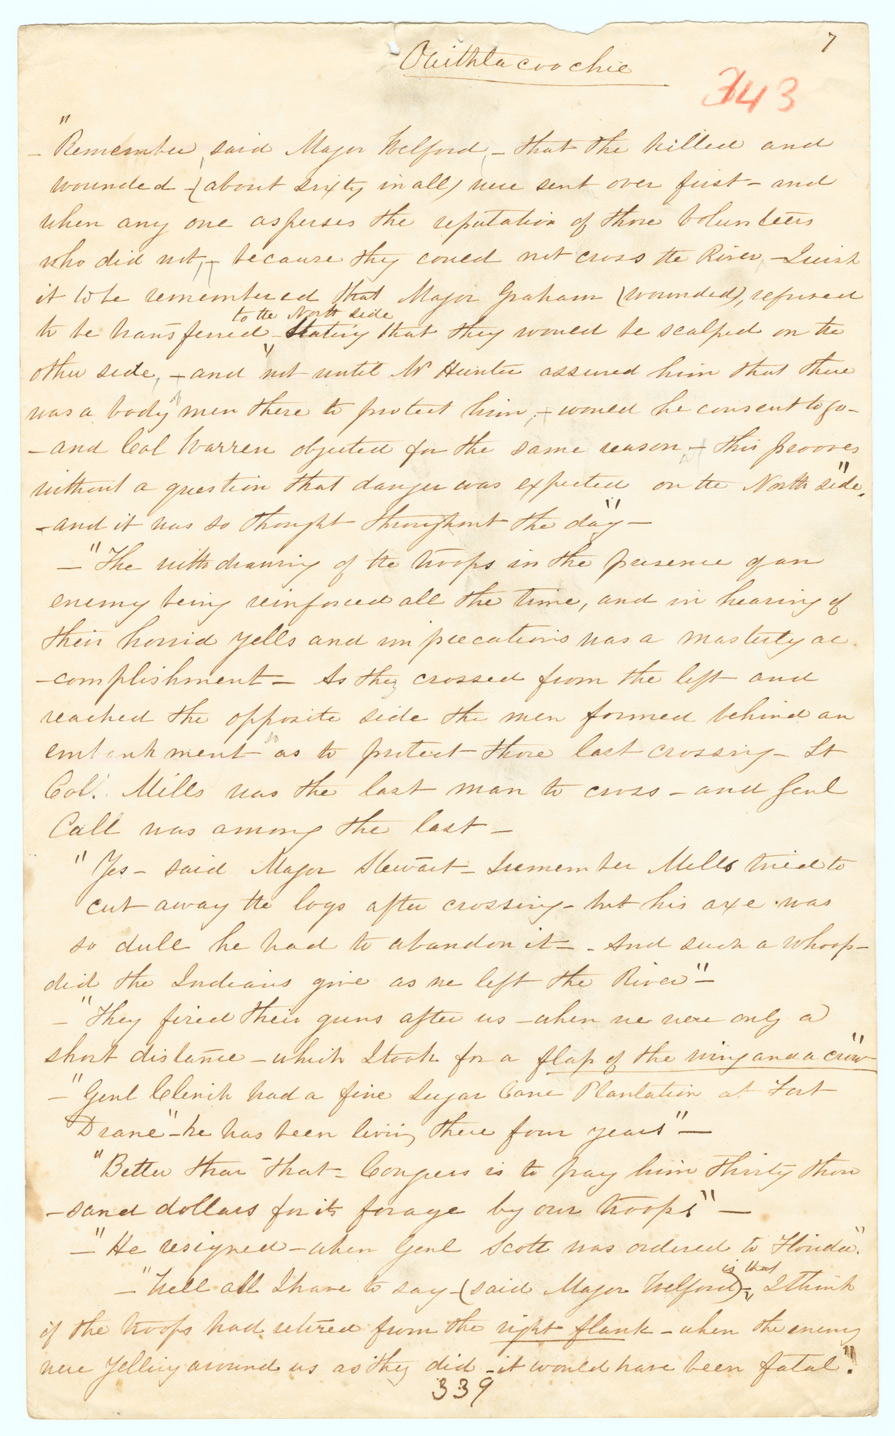 7
Ouithlacoochie
343
"
- Remember, said Major Welford, - that the killed and
wounded - (about sixty in all) were sent over first - and
when any one asperses the reputation of those Volunteers
who did not, - because they could not cross the River - I wish
it to be remembered that Major Graham (wounded), refused
to the North side
to be transferred - Stating that they would be scalped on the
other side, - and "not until Mr Hunter assured him that there
was a body men there to protect him, - would he consent to go -
- and Col Warren objected for the same reason, - this prooves
without a question that danger was expected on the North side",
- and it was so thought throughout the day" -
- "The withdrawing of the troops in the presence of an
enemy being reinforced all the time, and in hearing of
their horrid yells and imprecations was a masterly ac
-complishment - As they crossed from the left and
reached the opposite side the men formed behind an
so
embankment as to protect those last crossing - Lt
Col. Mills was the last man to cross - and Genl
Call was among the last -
"Yes - said Major Stewart - I remember Mills tried to
cut away the logs after crossing - but his axe was
so dull he had to abandon it - . And such a whoop -
did the Indians give as we left the River" -
- "They fired their guns after us - when we were only a
short distance - which I took for a flap of the wing and a crow"
- "Genl Clinch had a fine Sugar Cane Plantation at Fort
Drane" - he has been living there four years" -
"Better than that - Congress is to pay him thirty thou
-sand dollars for its forage by our troops" -
- "He resigned - when Genl Scott was ordered to Florida".
is that
- "Well all I have to say - (said Major Welford) - I think
if the troops had retired from the right flank - when the enemy
were yelling around us as they did - it would have been fatal".
339